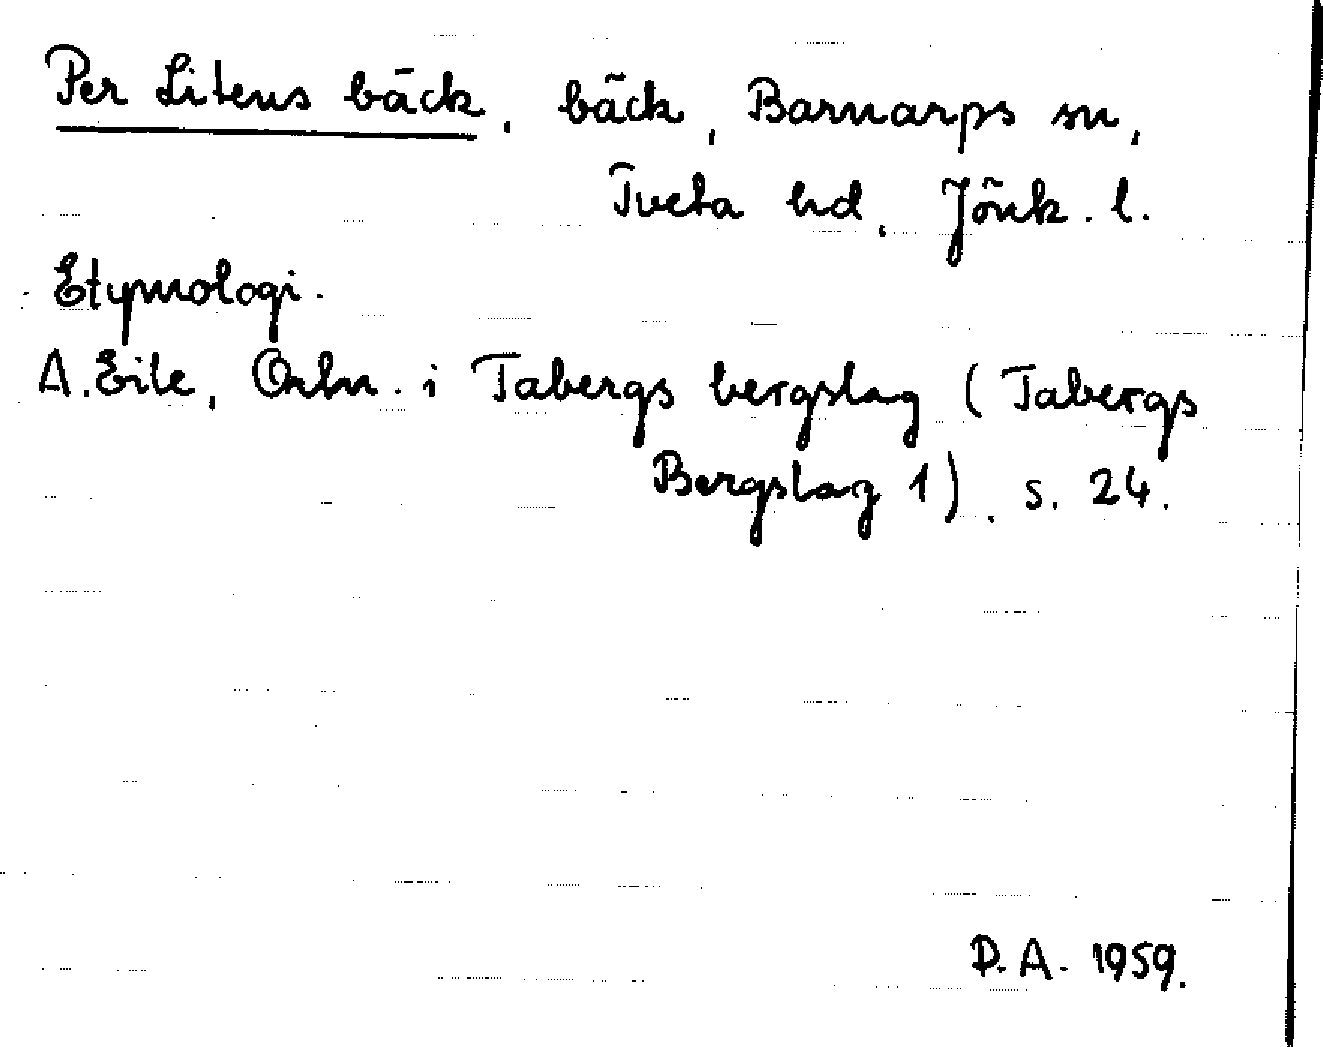 Per Litens bäck, bäck, Barnarps sn,
Tveta hd, Jönk. l.
Etymologi.
A. Eile, Ortn. i Tabergs bergslag (Tabergs
Bergslag 1), s. 24.
D. A. 1959.